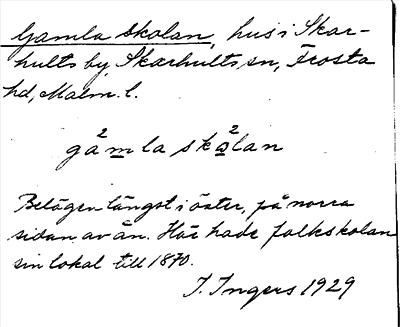 Gamla skolan, hus i Skar-
hults by, Skarhults sn, Frosta
hd, Malm. l.
gå²mla skο²lan
Belägen längst i öster, på norra
sidan av ån. Här hade folkskolan
sin lokal till 1870.
I. Ingers 1929